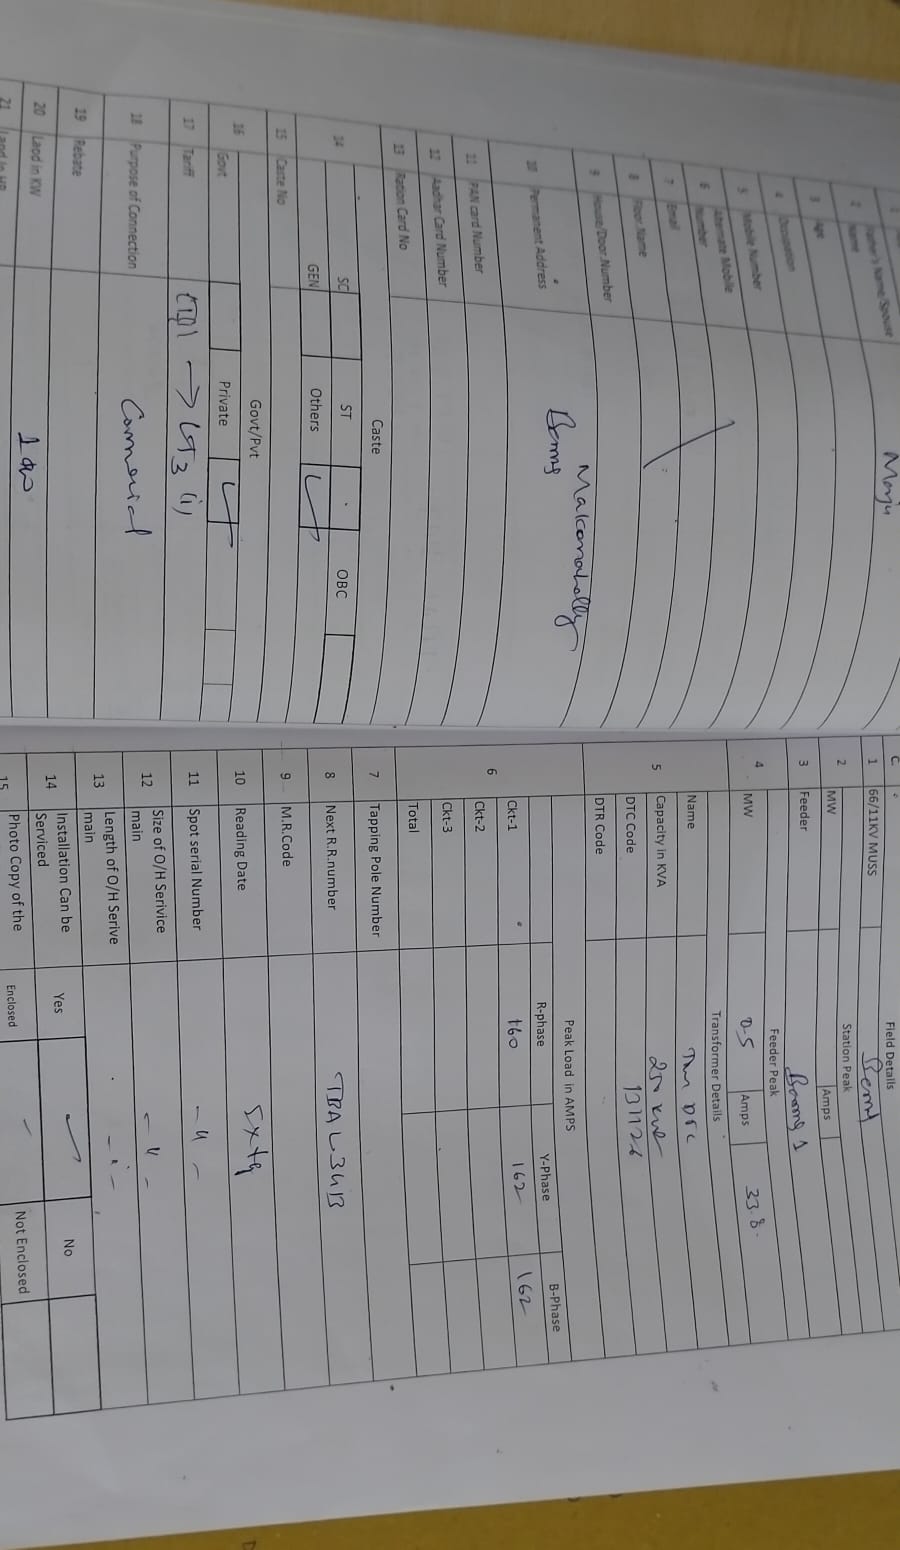 Manju
2 Father's Name/Spouse Name
3 Age
4 Occupation
5 Mobile Number
6 Alternate Mobile Number
7 Email
8 Floor Name
9 House/Door Number
10 Permanent Address Makonahally
11 PAN card Number
12 Aadhar Card Number
13 Ration Card No
Caste
14 SC ST OBC
GEN Others
15 Caste No
Govt/Pvt
16 Govt Private
17 Tariff → LT3 (i)
18 Purpose of Connection Commercial
19 Rebate
20 Laod in KW
21
C Field Details
1 66/11KV MUSS
2 Station Peak
MW Amps
3 Feeder
Feeder Peak
4 MW 0.5 Amps 33.8
Transformer Details
5 Name
Capacity in KVA 250 kva
DTC Code
DTR Code
6 Peak Load in AMPS
R-phase Y-Phase B-Phase
Ckt-1 160 162 162
Ckt-2
Ckt-3
Total
7 Tapping Pole Number
8 Next R.R.number TBAL3413
9 M.R.Code
10 Reading Date
11 Spot serial Number - 4 -
12 Size of O/H Serivice main - 4 -
13 Length of O/H Serive main
14 Installation Can be Serviced Yes No
15 Photo Copy of the Enclosed Not Enclosed